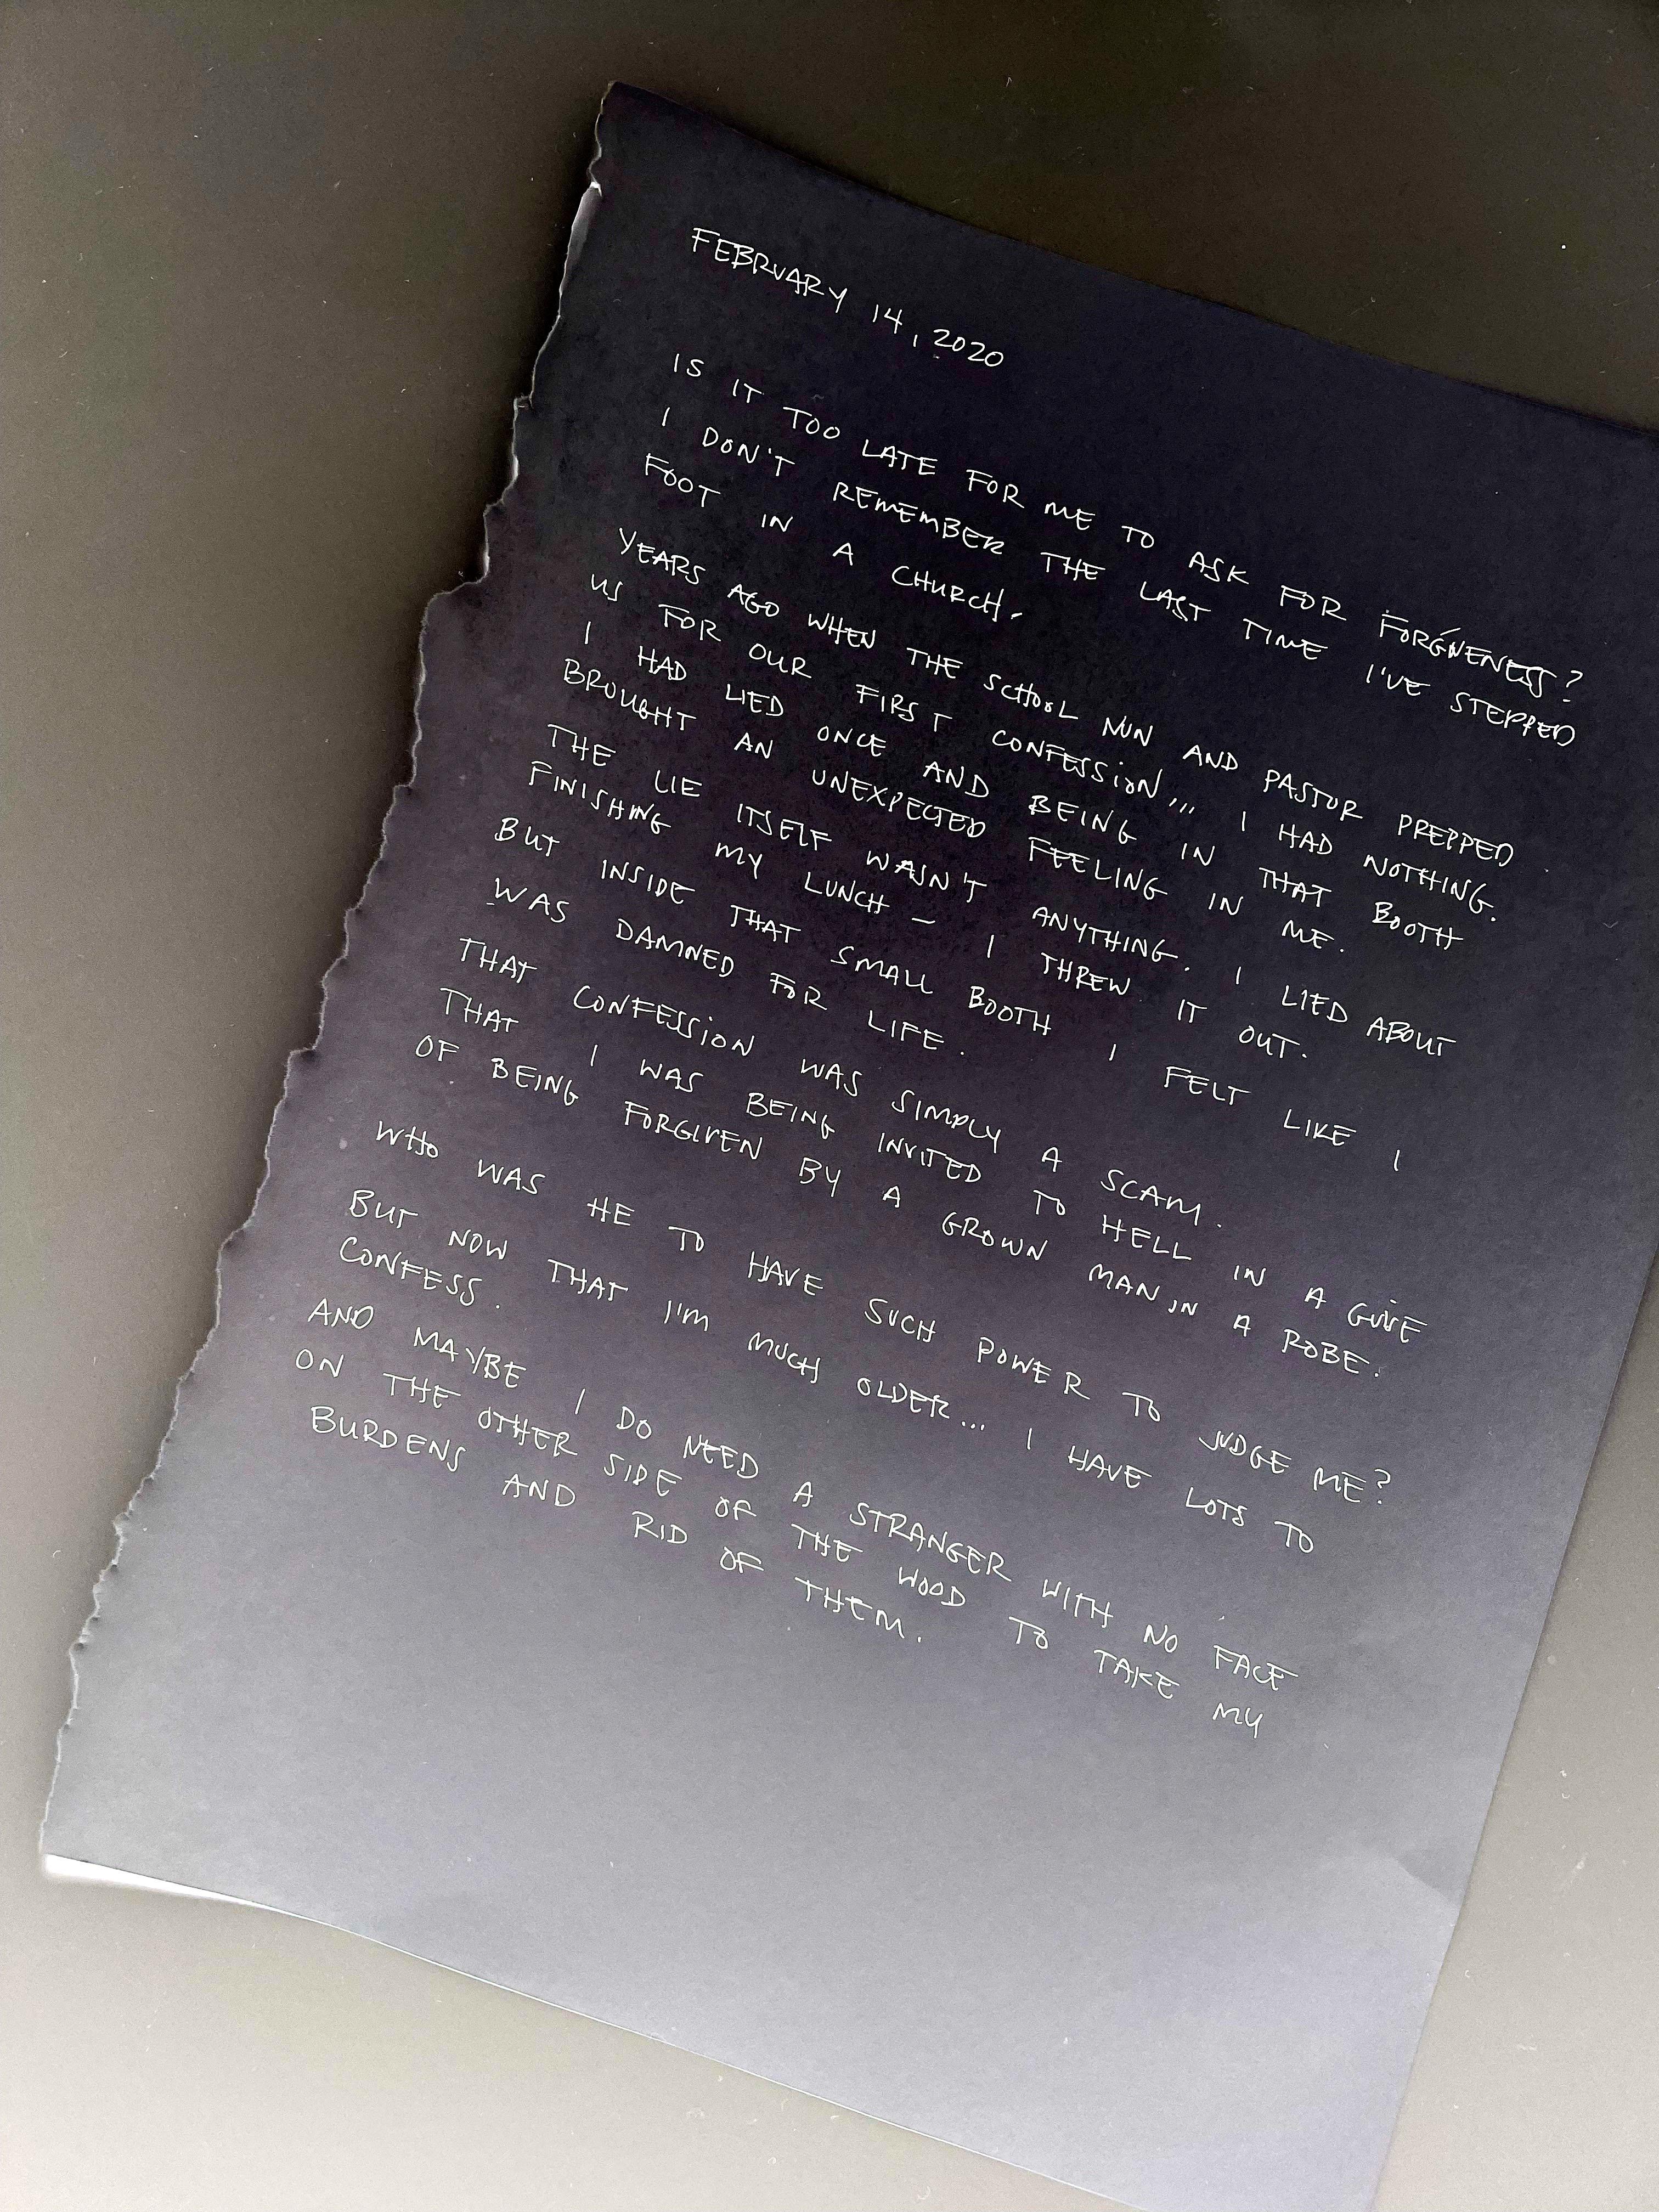 FEBRUARY 14, 2020
IS IT TOO LATE FOR ME TO ASK FOR FORGIVENESS?
I DON'T REMEMBER THE LAST TIME I'VE STEPPED
FOOT IN A CHURCH.
YEARS AGO WHEN THE SCHOOL NUN AND PASTOR PREPPED
US FOR OUR FIRST CONFESSION... I HAD NOTHING.
I HAD LIED ONCE AND BEING IN THAT BOOTH
BROUGHT AN UNEXPECTED FEELING IN ME.
THE LIE ITSELF WASN'T ANYTHING. I LIED ABOUT
FINISHING MY LUNCH – I THREW IT OUT.
BUT INSIDE THAT SMALL BOOTH I FELT LIKE I
WAS DAMNED FOR LIFE.
THAT CONFESSION WAS SIMPLY A SCAM.
THAT I WAS BEING INVITED TO HELL IN A GUISE
OF BEING FORGIVEN BY A GROWN MAN IN A ROBE.
WHO WAS HE TO HAVE SUCH POWER TO JUDGE ME?
BUT NOW THAT I'M MUCH OLDER... I HAVE LOTS TO
CONFESS.
AND MAYBE I DO NEED A STRANGER WITH NO FACE
ON THE OTHER SIDE OF THE WOOD TO TAKE MY
BURDENS AND RID OF THEM.